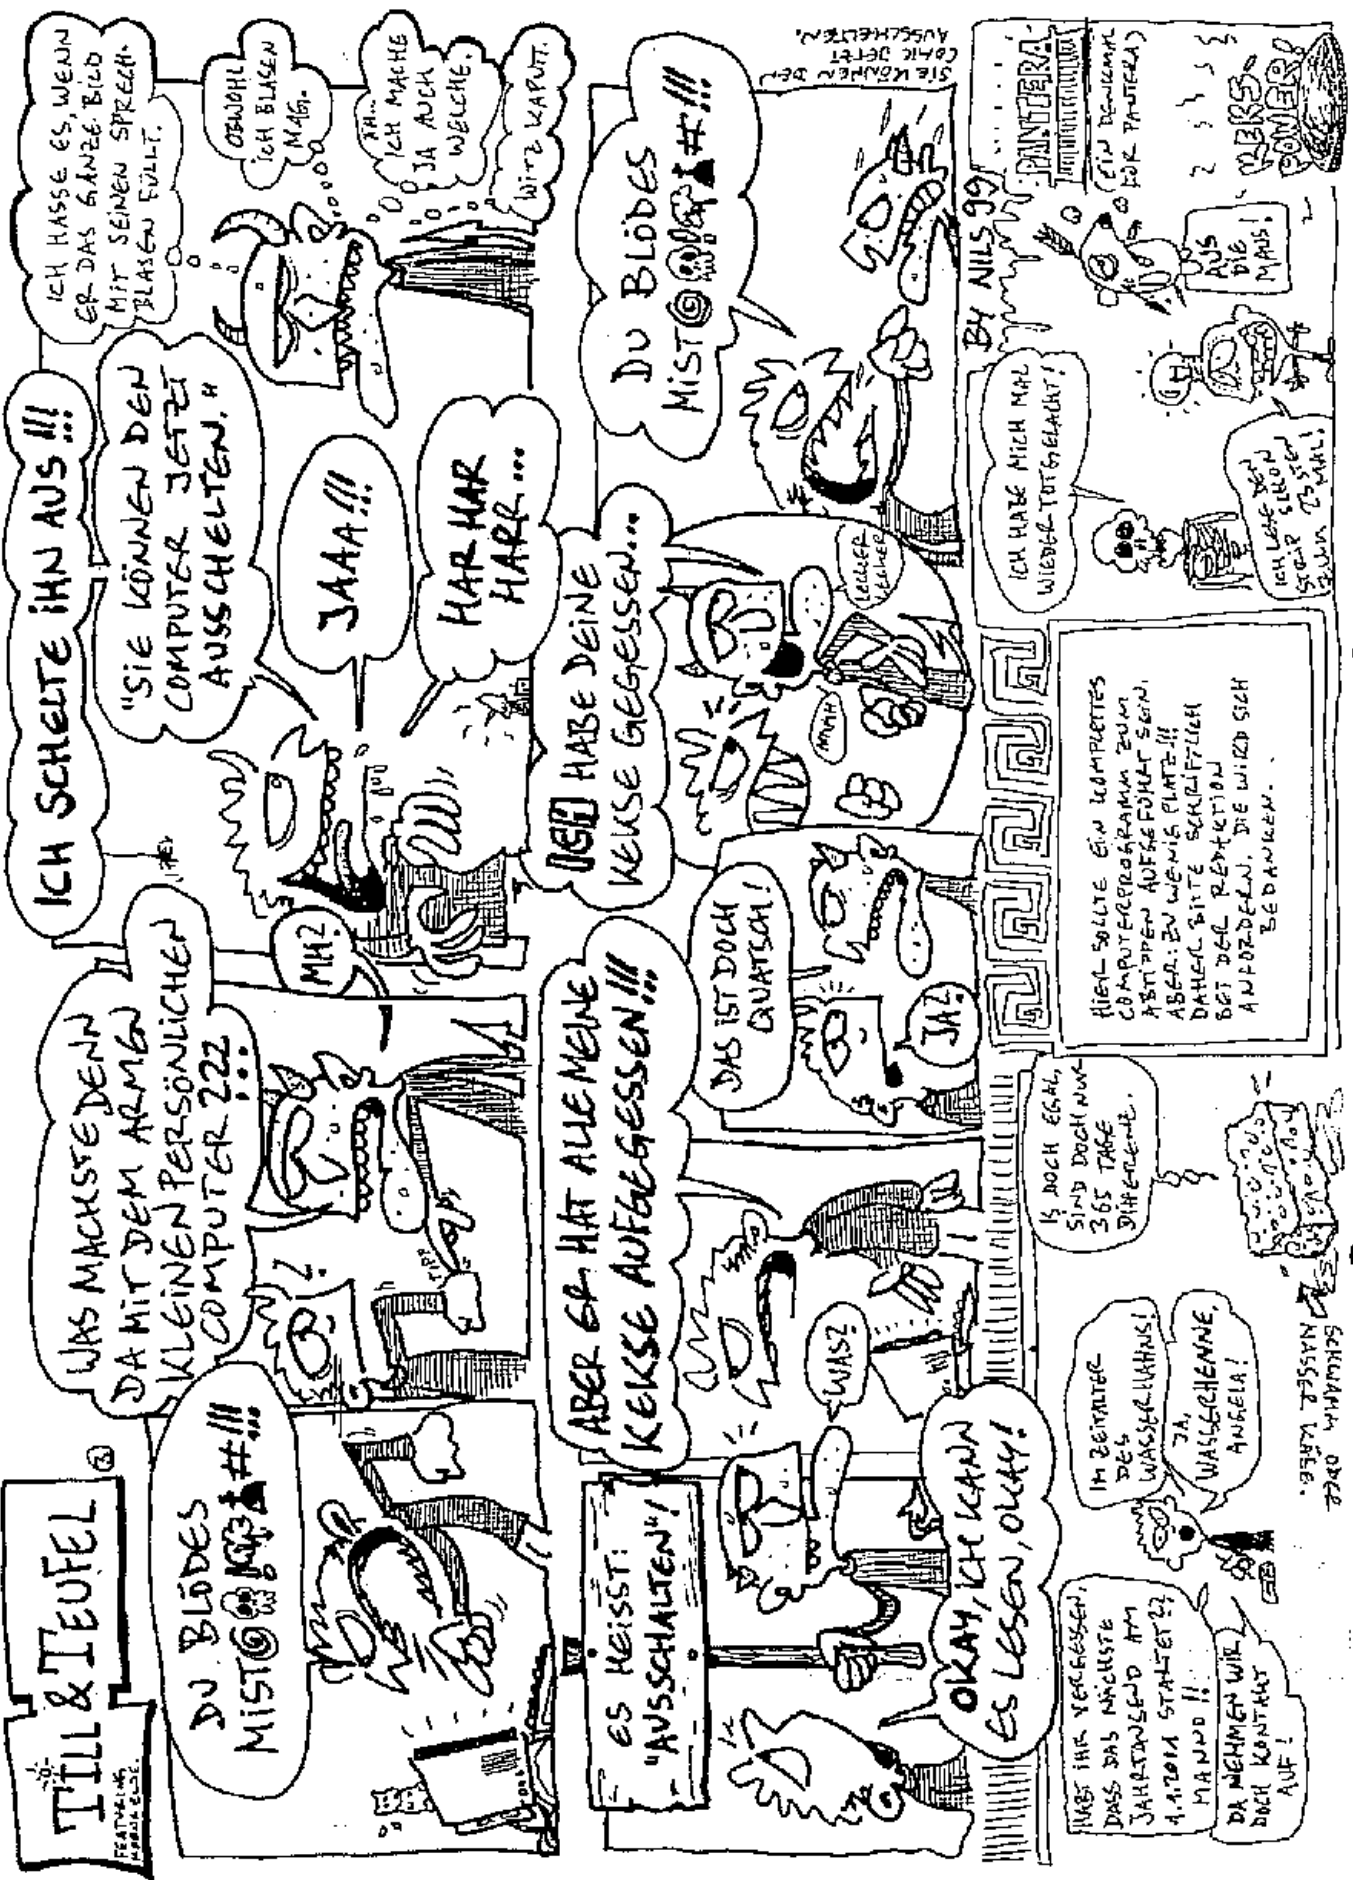 TILL & TEUFEL
FEATURING
DU BLÖDES
MIST
#!!!
WAS MACHSTE DENN
DA MIT DEM ARMEN
KLEINEN PERSÖNLICHEN
COMPUTER ???
TIPP
MH?
ICH SCHELTE IHN AUS!!!
"SIE KÖNNEN DEN
COMPUTER JETZT
AUSSCHELTEN."
JAAA!!!
HAR HAR
HARR...
ICH HASSE ES, WENN
ER DAS GANZE BILD
MIT SEINEN SPRECH-
BLASEN FÜLLT.
OBWOHL
ICH BLASEN
MAG.
ÄH...
ICH MACHE
JA AUCH
WELCHE.
WITZ KAPUTT.
ES HEISST:
"AUSSCHALTEN"!
OKAY, ICH KANN
ES LESEN, OKAY!
ABER ER HAT ALLE MEINE
KEKSE AUFGEGESSEN!!!
WAS?
DAS IST DOCH
QUATSCH!
JA?
ICH HABE DEINE
KEKSE GEGESSEN...
MMH
LECKER
LECKER
DU BLÖDES
MIST
#!!!
SIE KÖNNEN DEN
COMIC JETZT
AUSSCHELTEN.
BY NILS 99
HABT IHR VERGESSEN,
DASS DAS NÄCHSTE
JAHRTAUSEND AM
1.1.2001 STARTET??
MANNO!!
DA NEHMEN WIR
DOCH KONTAKT
AUF!
IM ZEITALTER
DES
WASSERHAHNS!
JA,
WASSERHENNE,
ANGELA!
IS DOCH EGAL,
SIND DOCH NUR
365 TAGE
DIFFERENZ.
SCHWAMM ODER
NASSER KÄSE.
HIER SOLLTE EIN KOMPLETTES
COMPUTERPROGRAMM ZUM
ABTIPPEN AUFGEFÜHRT SEIN.
ABER: ZU WENIG PLATZ!!!
DAHER BITTE SCHRIFTLICH
BEI DER REDAKTION
ANFORDERN. DIE WIRD SICH
BEDANKEN..
ICH HABE MICH MAL
WIEDER TOTGELACHT!
ICH LESE DEN
STRIP SCHON
ZUM 23STEN
MAL!
AUS
DIE
MAUS!
PANTERA
(EIN DENKMAL
FÜR PANTERA)
KERS-
POWER!